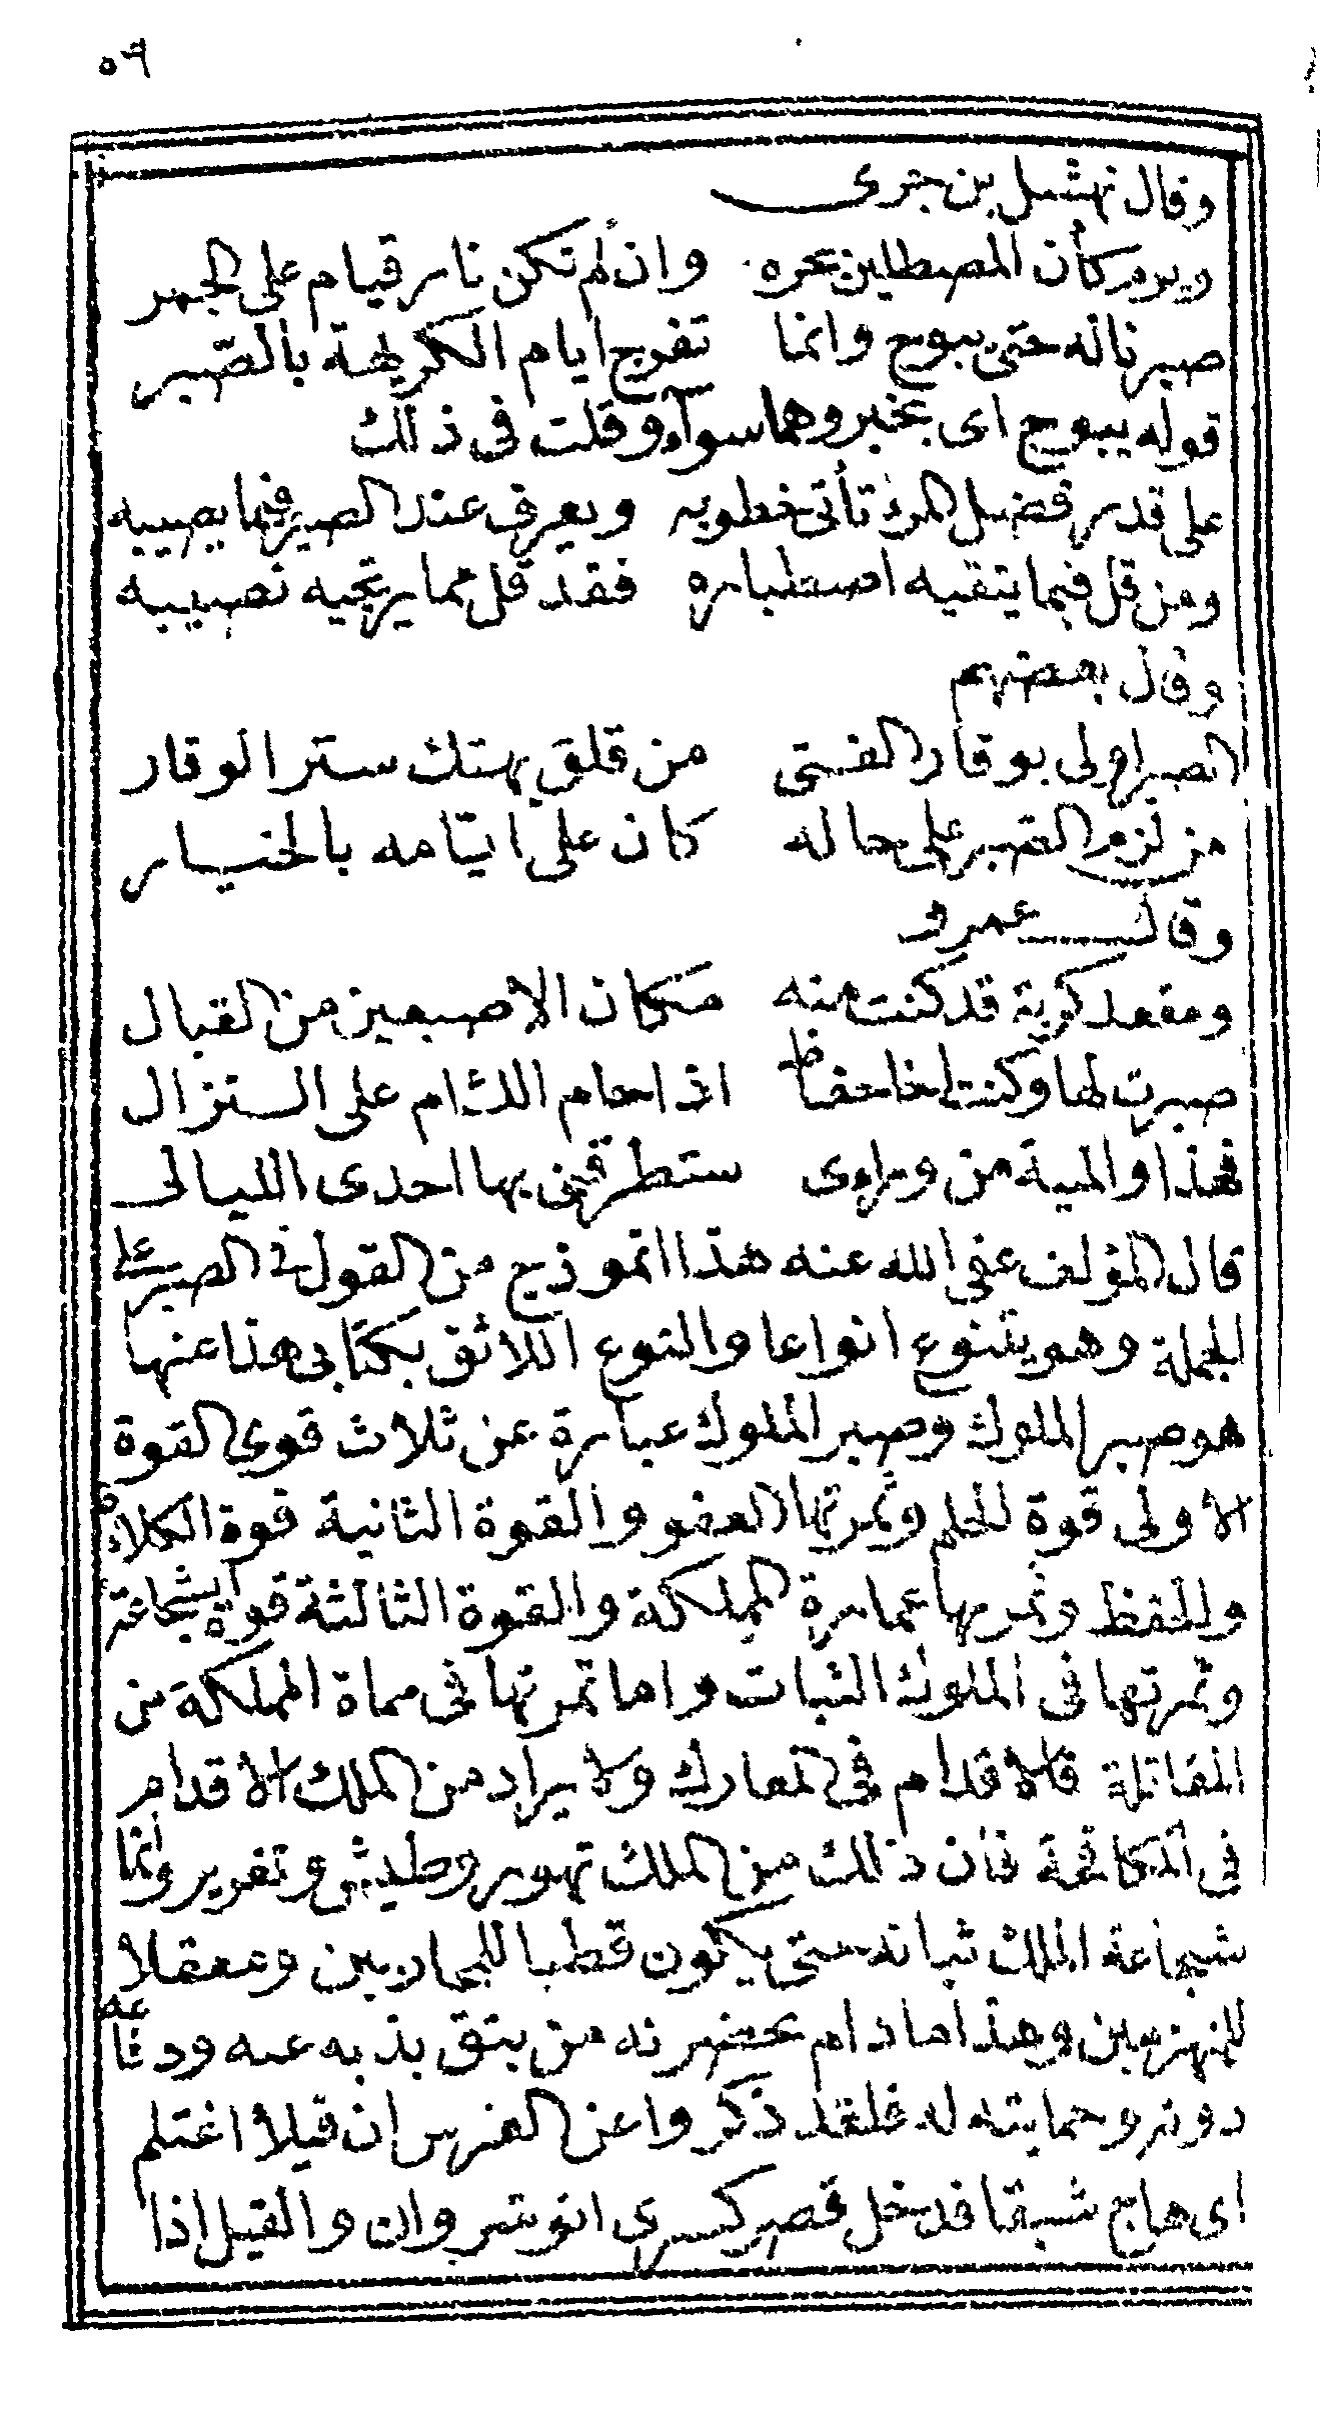 ٥٩
وقال نهشل بن جرى
ويوم كأن المصطلين بحره وان لم تكن نار قيام على الجمر
صبرنا له حتى يبوح وانما تفرج ايام الكريهة بالصبر
قوله يبوح اى يخبر وهما سواء وقلت فى ذلك
على قدر فضل المرء تأتى خطوبه ويعرف عند الصبر فيما يصيبه
ومن قل فيما يتقيه اصطباره فقد قل مما يرتجيه نصيبه
وقال بعضهم
الصبر اولى بوقار الفتى من قلق يهتك ستر الوقار
من لزم الصبر على حاله كان على ايامه بالخيار
وقال عمرو
ومقعد كربة قد كنت منه مكان الاصبعين من القبال
صبرت لها وكنت اخا حفاظ اذا حام اللئام على النزال
فهذا والمنية من وراءى ستطرقنى بها احدى الليالى
قال المؤلف عفى الله عنه هذا انموذج من القول فى الصبر على
الجملة وهو يتنوع انواعا والنوع اللائق بكتابى هذا عنها
هو صبر الملوك وصبر الملوك عبارة عن ثلاث قوى القوة
الاولى قوة الحلم وثمرتها العفو والقوة الثانية قوة الكلاءة
والحفظ وثمرتها عمارة المملكة والقوة الثالثة قوة الشجاعة
وثمرتها فى الملوك الثبات واما ثمرتها فى حماة المملكة من
المقاتلة فالاقدام فى المعارك ولا يراد من الملك الاقدام
فى المكافحة فان ذلك من الملك تهور وطيش وتغرير وانما
شجاعة الملك ثباته حتى يكون قطبا للمحاربين ومعقلا
للمنهزمين وهذا ما دام بحضرته من يثق بذبه عنه ودفاعه
دونه وحمايته له فلقد ذكروا عن الفرس ان فيلا اغتلم
اى هاج شبقا فدخل قصر كسرى انوشروان والفيل اذا